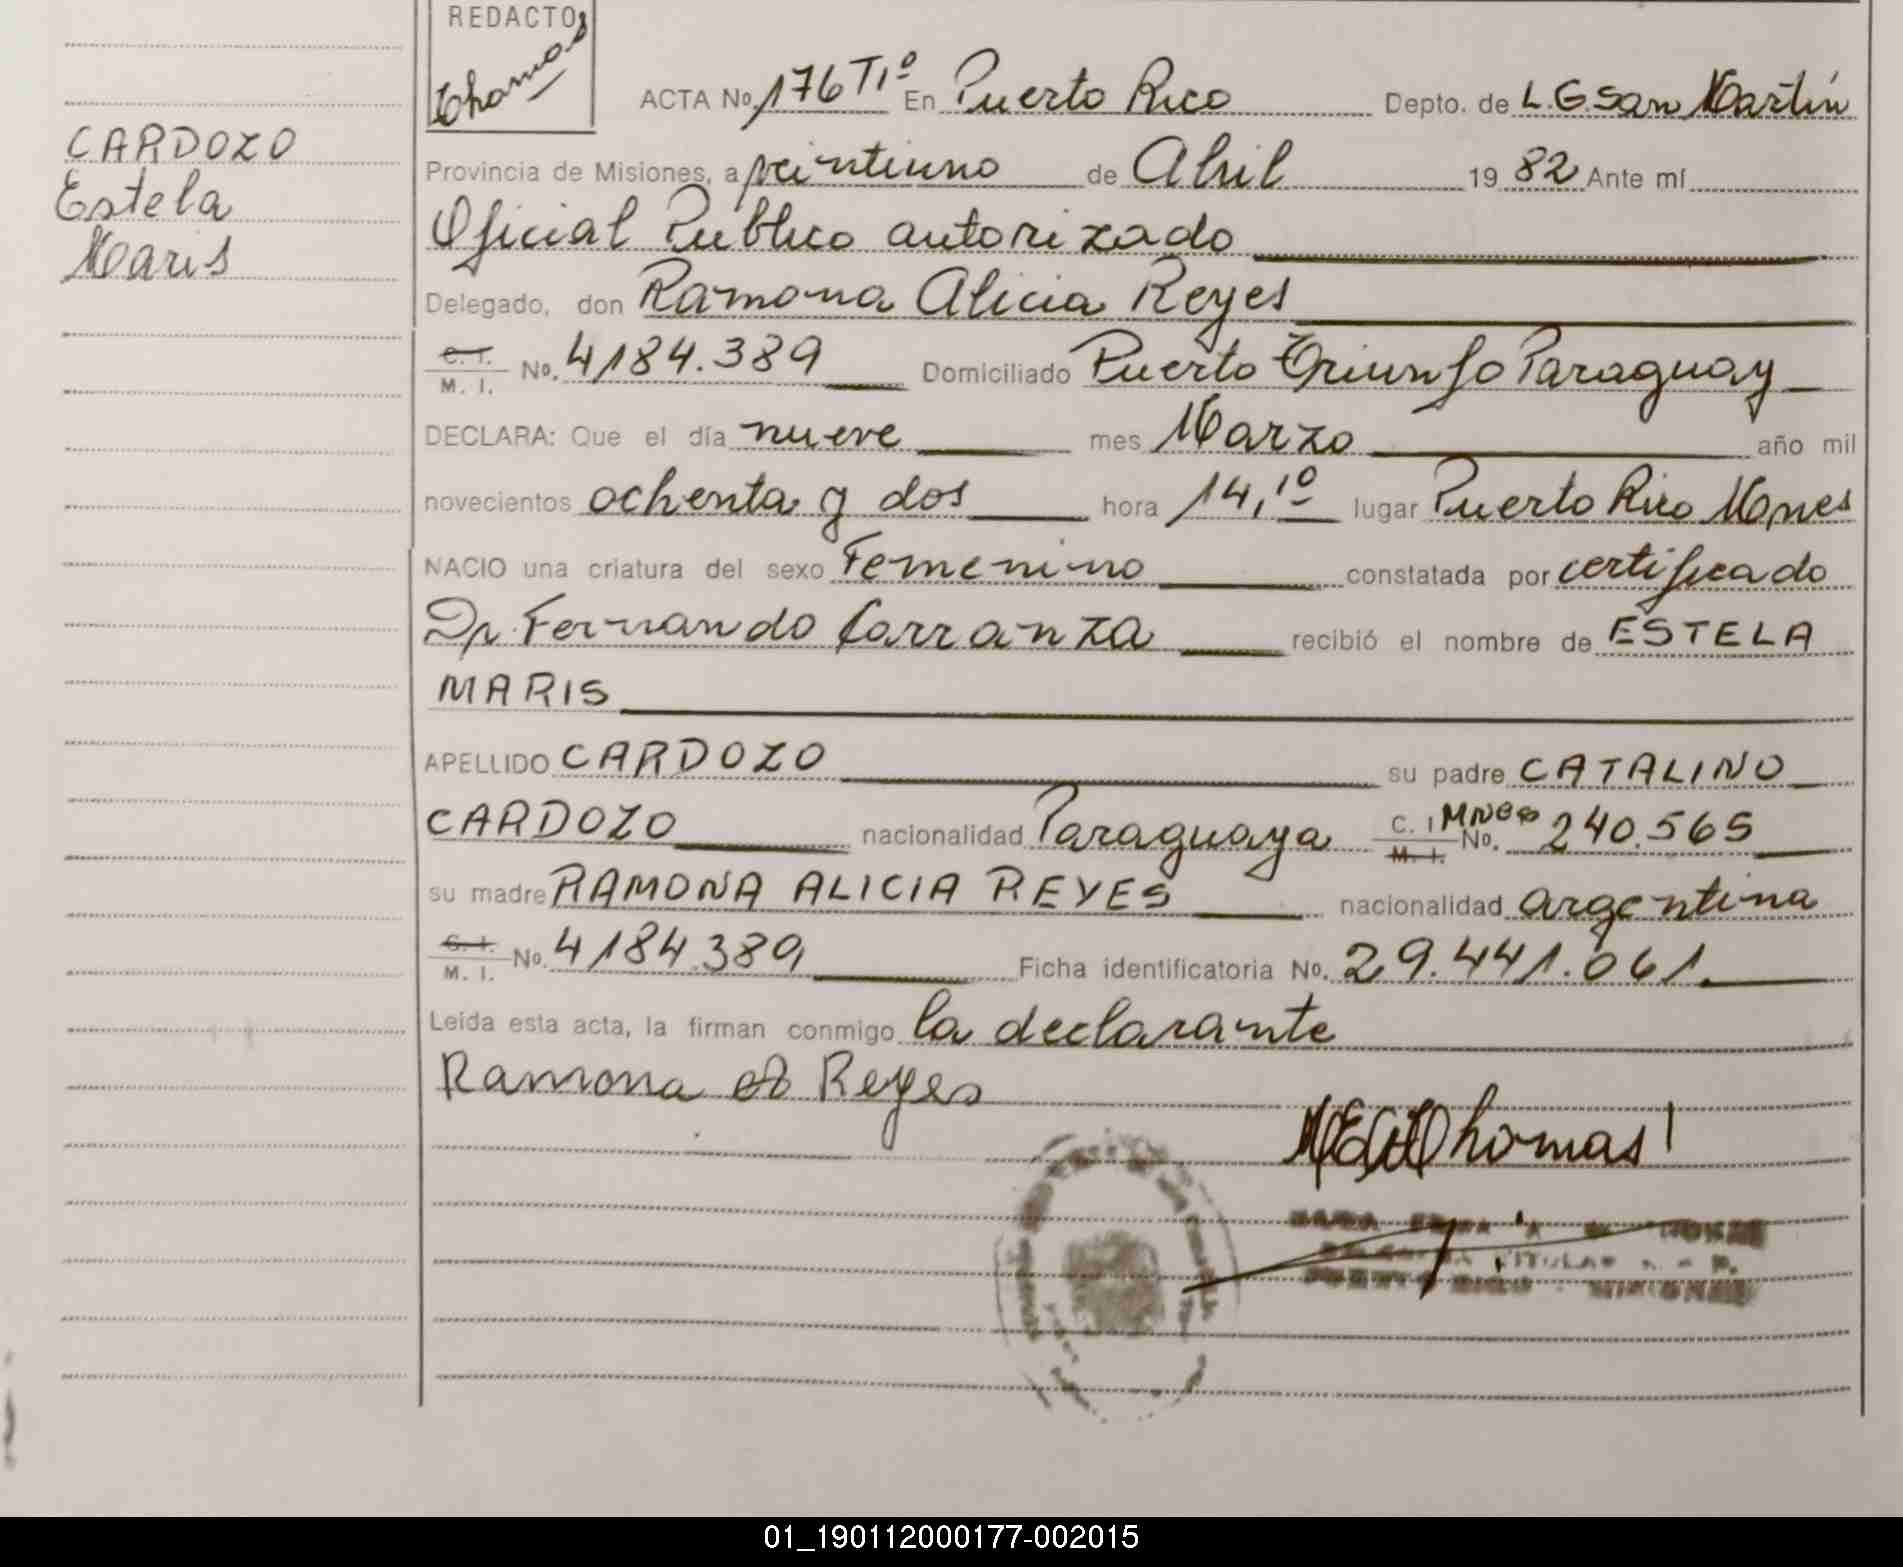 REDACTO
Thomas
ACTA No. 176 T1º En Puerto Rico Depto. de L.G.San Martín
CARDOZO
Estela
Maris
Provincia de Misiones, a veintiuno de Abril 19 82 Ante mí
Oficial Publico autorizado
Delegado, don Ramona Alicia Reyes
C. I.
M. I. No. 4184.389 Domiciliado Puerto Triunfo Paraguay
DECLARA: Que el día nueve mes Marzo año mil
novecientos ochenta y dos hora 14,10 lugar Puerto Rico Mnes
NACIO una criatura del sexo Femenino constatada por certificado
Dr. Fernando Carranza recibió el nombre de ESTELA
MARIS
APELLIDO CARDOZO su padre CATALINO
CARDOZO nacionalidad Paraguaya C. I. Mnes
M. I. No. 240.565
su madre RAMONA ALICIA REYES nacionalidad argentina
C. I.
M. I. No. 4184.389 Ficha identificatoria No. 29.441.061
Leída esta acta, la firman conmigo la declarante
Ramona A Reyes
Thomas
PUERTO RICO - MISIONES
01_190112000177-002015